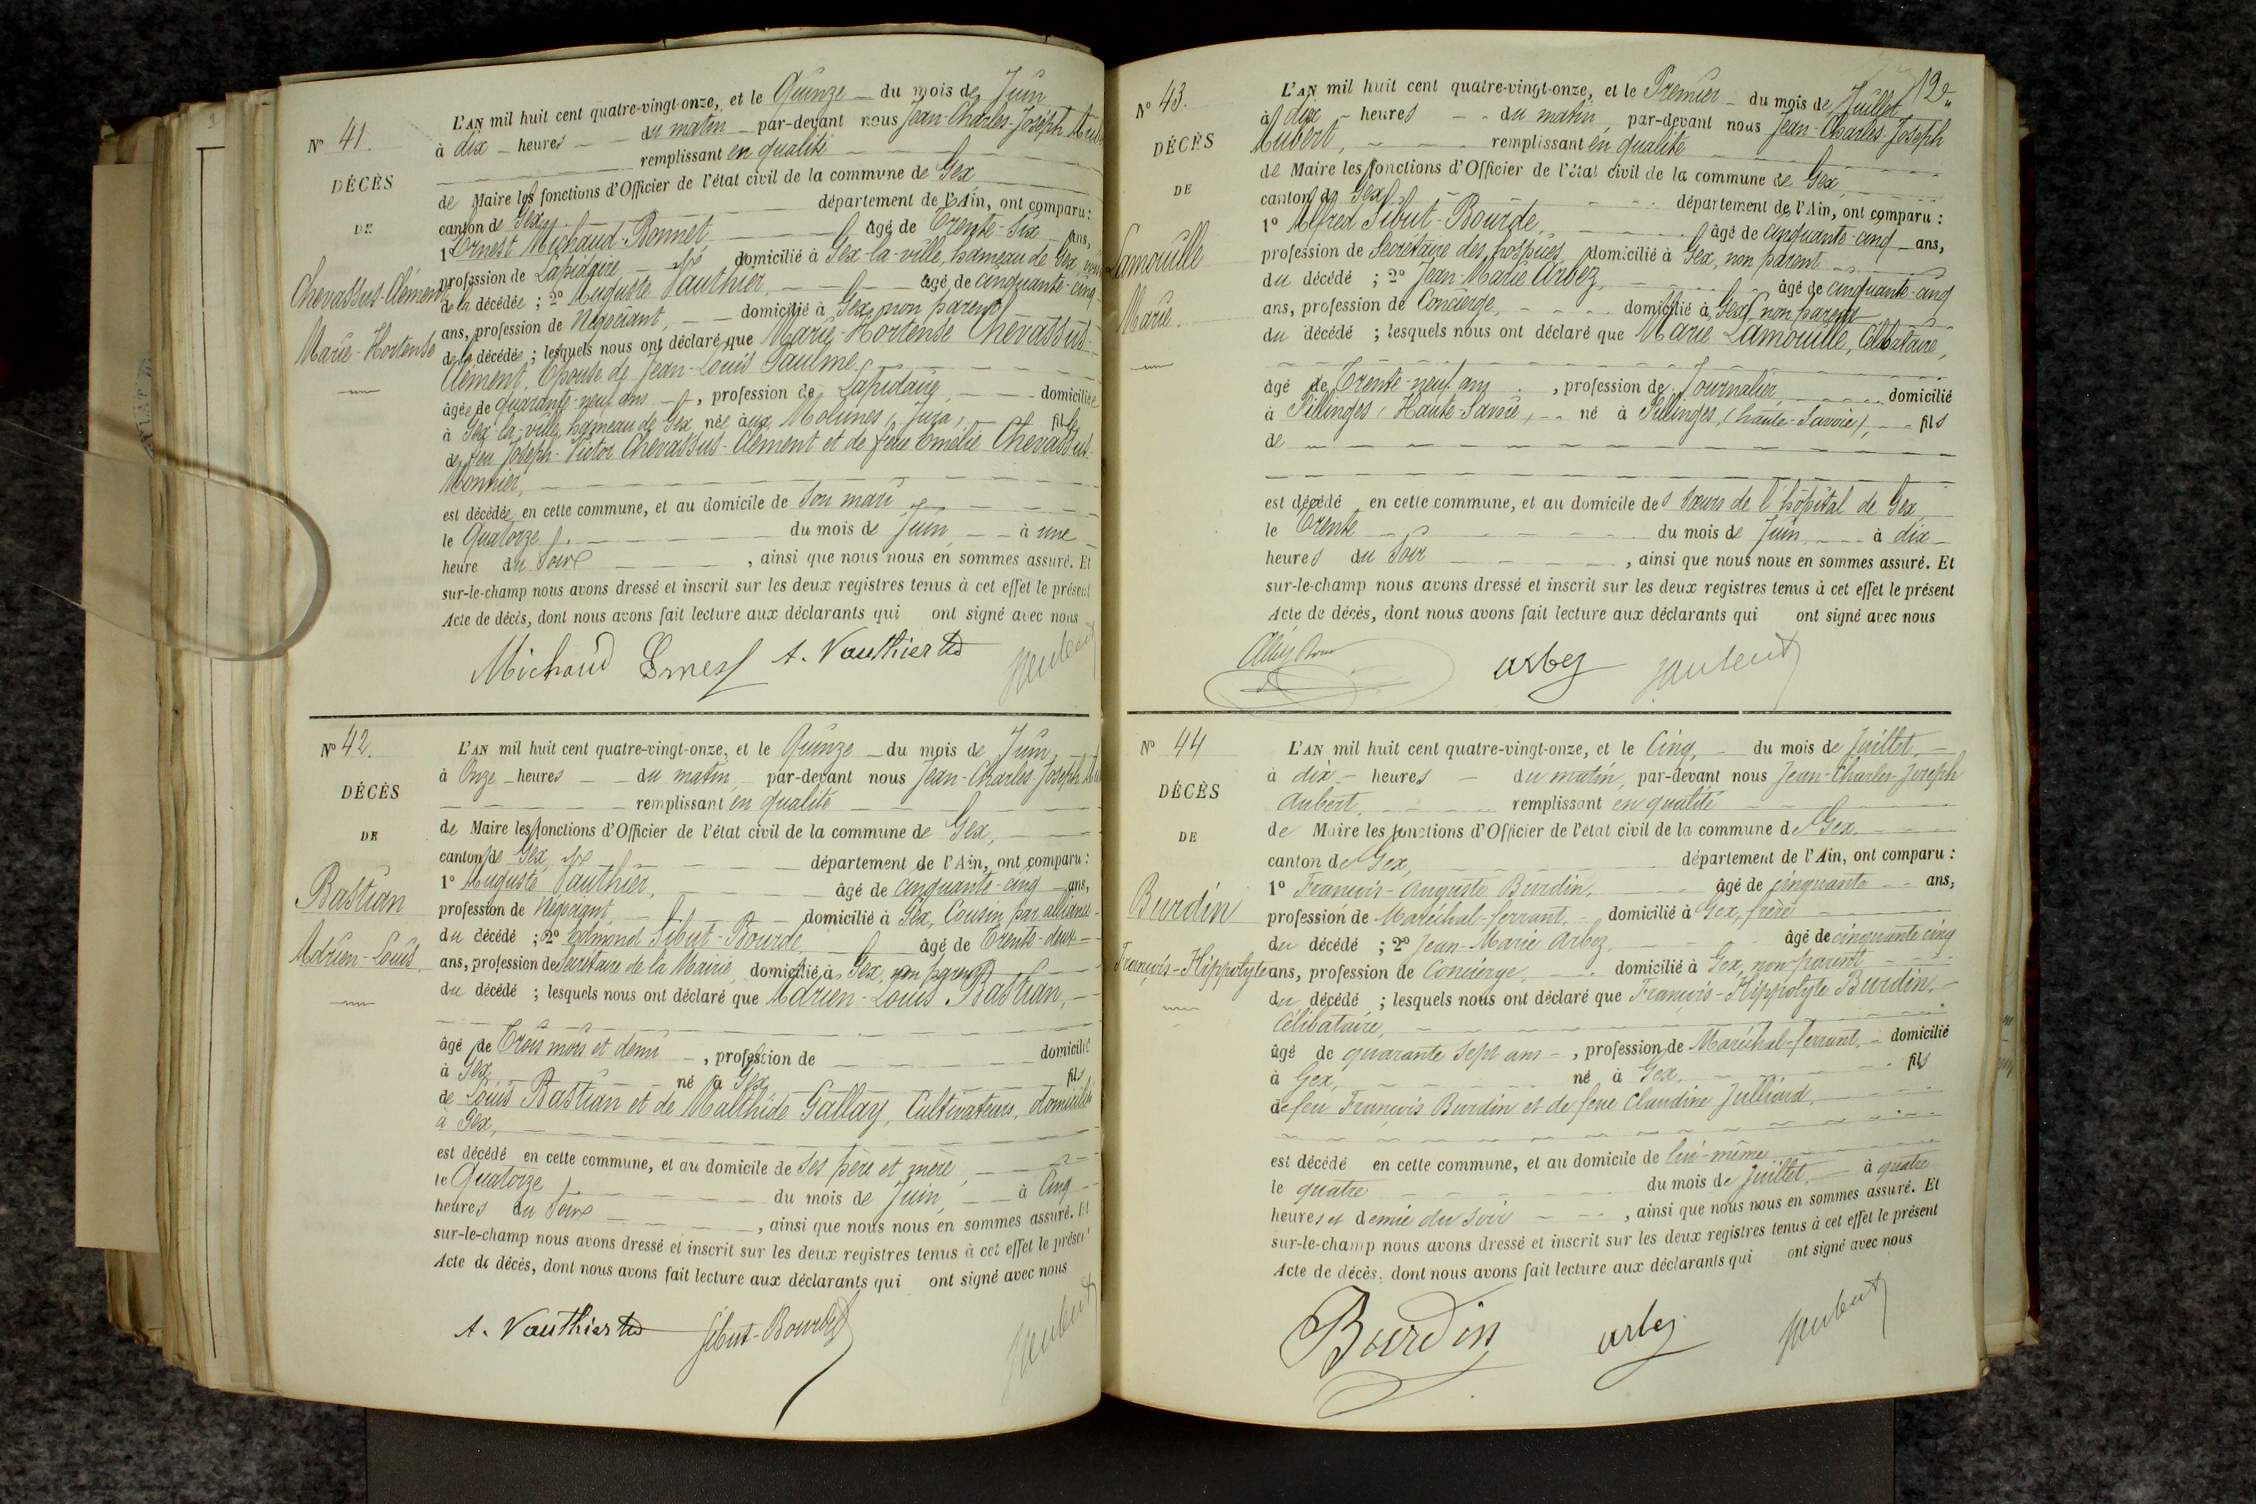 N° 41.
DÉCÈS
DE
Chevassus-Clément
Marie-Hortense
L'AN mil huit cent quatre-vingt-onze, et le Quinze du mois de Juin
à dix heures du matin par-devant nous Jean-Charles-Joseph
remplissant en qualité
de Maire les fonctions d'Officier de l'état civil de la commune de Gex
canton de Gex département de l'Ain, ont comparu :
1° Ernest Michaud-Bonnet, âgé de Trente-Six ans,
profession de Lapidaire domicilié à Gex-la-ville, hameau de Gex,
de la décédée ; 2° Auguste Vauthier, âgé de cinquante-cinq
ans, profession de Négociant, domicilié à Gex, non parent
de la décédée ; lesquels nous ont déclaré que Marie-Hortense Chevassus-
Clément, Epouse de Jean-Louis Paulme
âgée de quarante-neuf ans, profession de Lapidaire, domiciliée
à Gex-la-ville, hameau de Gex née aux Molunes, Jura, fille
de feu Joseph-Victor Chevassus-Clément et de feue Emélie Chevassus-
Monnier,
est décédée en cette commune, et au domicile de son mari
le Quatorze du mois de Juin à une
heure du Soir, ainsi que nous nous en sommes assuré. Et
sur-le-champ nous avons dressé et inscrit sur les deux registres tenus à cet effet le présent
Acte de décès, dont nous avons fait lecture aux déclarants qui ont signé avec nous
Michaud Ernest A. Vauthier JAubert
N° 42.
DÉCÈS
DE
Bastian
Adrien-Louis
L'AN mil huit cent quatre-vingt-onze, et le Quinze du mois de Juin
à Onze heures du matin par-devant nous Jean-Charles Joseph
remplissant en qualité
de Maire les fonctions d'Officier de l'état civil de la commune de Gex,
canton de Gex département de l'Ain, ont comparu :
1° Auguste Vauthier, âgé de cinquante-cinq ans,
profession de Négociant domicilié à Gex, Cousin par alliance
du décédé ; 2° Edmond Sibut-Bourde âgé de Trente-deux
ans, profession de Secrétaire de la Mairie, domicilié à Gex, non parent
du décédé ; lesquels nous ont déclaré que Adrien-Louis Bastian,
âgé de Trois mois et demi, profession de domicilié
à Gex né à Gex fils
de Louis Bastian et de Malthide Gallay, Cultivateurs, domiciliés
à Gex,
est décédé en cette commune, et au domicile de ses père et mère,
le Quatorze du mois de Juin, à Cinq
heures du Soir, ainsi que nous nous en sommes assuré. Et
sur-le-champ nous avons dressé et inscrit sur les deux registres tenus à cet effet le présent
Acte de décès, dont nous avons fait lecture aux déclarants qui ont signé avec nous
A. Vauthier Sibut-Bourde JAubert
12
N° 43.
DÉCÈS
DE
Lamouille
Marie.
L'AN mil huit cent quatre-vingt-onze, et le Premier du mois de Juillet
à dix heures du matin par-devant nous Jean-Charles-Joseph
Aubert, remplissant en qualité
de Maire les fonctions d'Officier de l'état civil de la commune de Gex,
canton de Gex département de l'Ain, ont comparu :
1° Alfred Sibut-Bourde, âgé de cinquante-cinq ans,
profession de Secrétaire des hospices domicilié à Gex, non parent
du décédé ; 2° Jean-Marie Arbez, âgé de cinquante-cinq
ans, profession de Concierge, domicilié à Gex, non parent
du décédé ; lesquels nous ont déclaré que Marie Lamouille, Célibataire,
âgé de Trente-neuf ans, profession de Journalier, domicilié
à Fillinges, Haute-Savoie, né à Fillinges, (haute-Savoie), fils
de
est décédé en cette commune, et au domicile des sœurs de l'hôpital de Gex,
le Trente du mois de Juin à dix
heures du Soir, ainsi que nous nous en sommes assuré. Et
sur-le-champ nous avons dressé et inscrit sur les deux registres tenus à cet effet le présent
Acte de décès, dont nous avons fait lecture aux déclarants qui ont signé avec nous
arbez JAubert
N° 44
DÉCÈS
DE
Burdin
François-Hippolyte
L'AN mil huit cent quatre-vingt-onze, et le Cinq, du mois de Juillet,
à dix heures du matin, par-devant nous Jean-Charles-Joseph
Aubert, remplissant en qualité
de Maire les fonctions d'Officier de l'état civil de la commune de Gex
canton de Gex, département de l'Ain, ont comparu :
1° François-Auguste Burdin, âgé de cinquante ans,
profession de Maréchal-ferrant, domicilié à Gex, frère
du décédé ; 2° Jean-Marie Arbez âgé de cinquante cinq
ans, profession de Concierge, domicilié à Gex, non parent
du décédé ; lesquels nous ont déclaré que François-Hippolyte Burdin,
Célibataire,
âgé de quarante sept ans, profession de Maréchal-ferrant, domicilié
à Gex, né à Gex, fils
de feu François Burdin et de feue Claudine Julliard,
est décédé en cette commune, et au domicile de lui-même
le quatre du mois de Juillet, à quatre
heures et demie du soir, ainsi que nous nous en sommes assuré. Et
sur-le-champ nous avons dressé et inscrit sur les deux registres tenus à cet effet le présent
Acte de décès, dont nous avons fait lecture aux déclarants qui ont signé avec nous
Burdin arbez JAubert